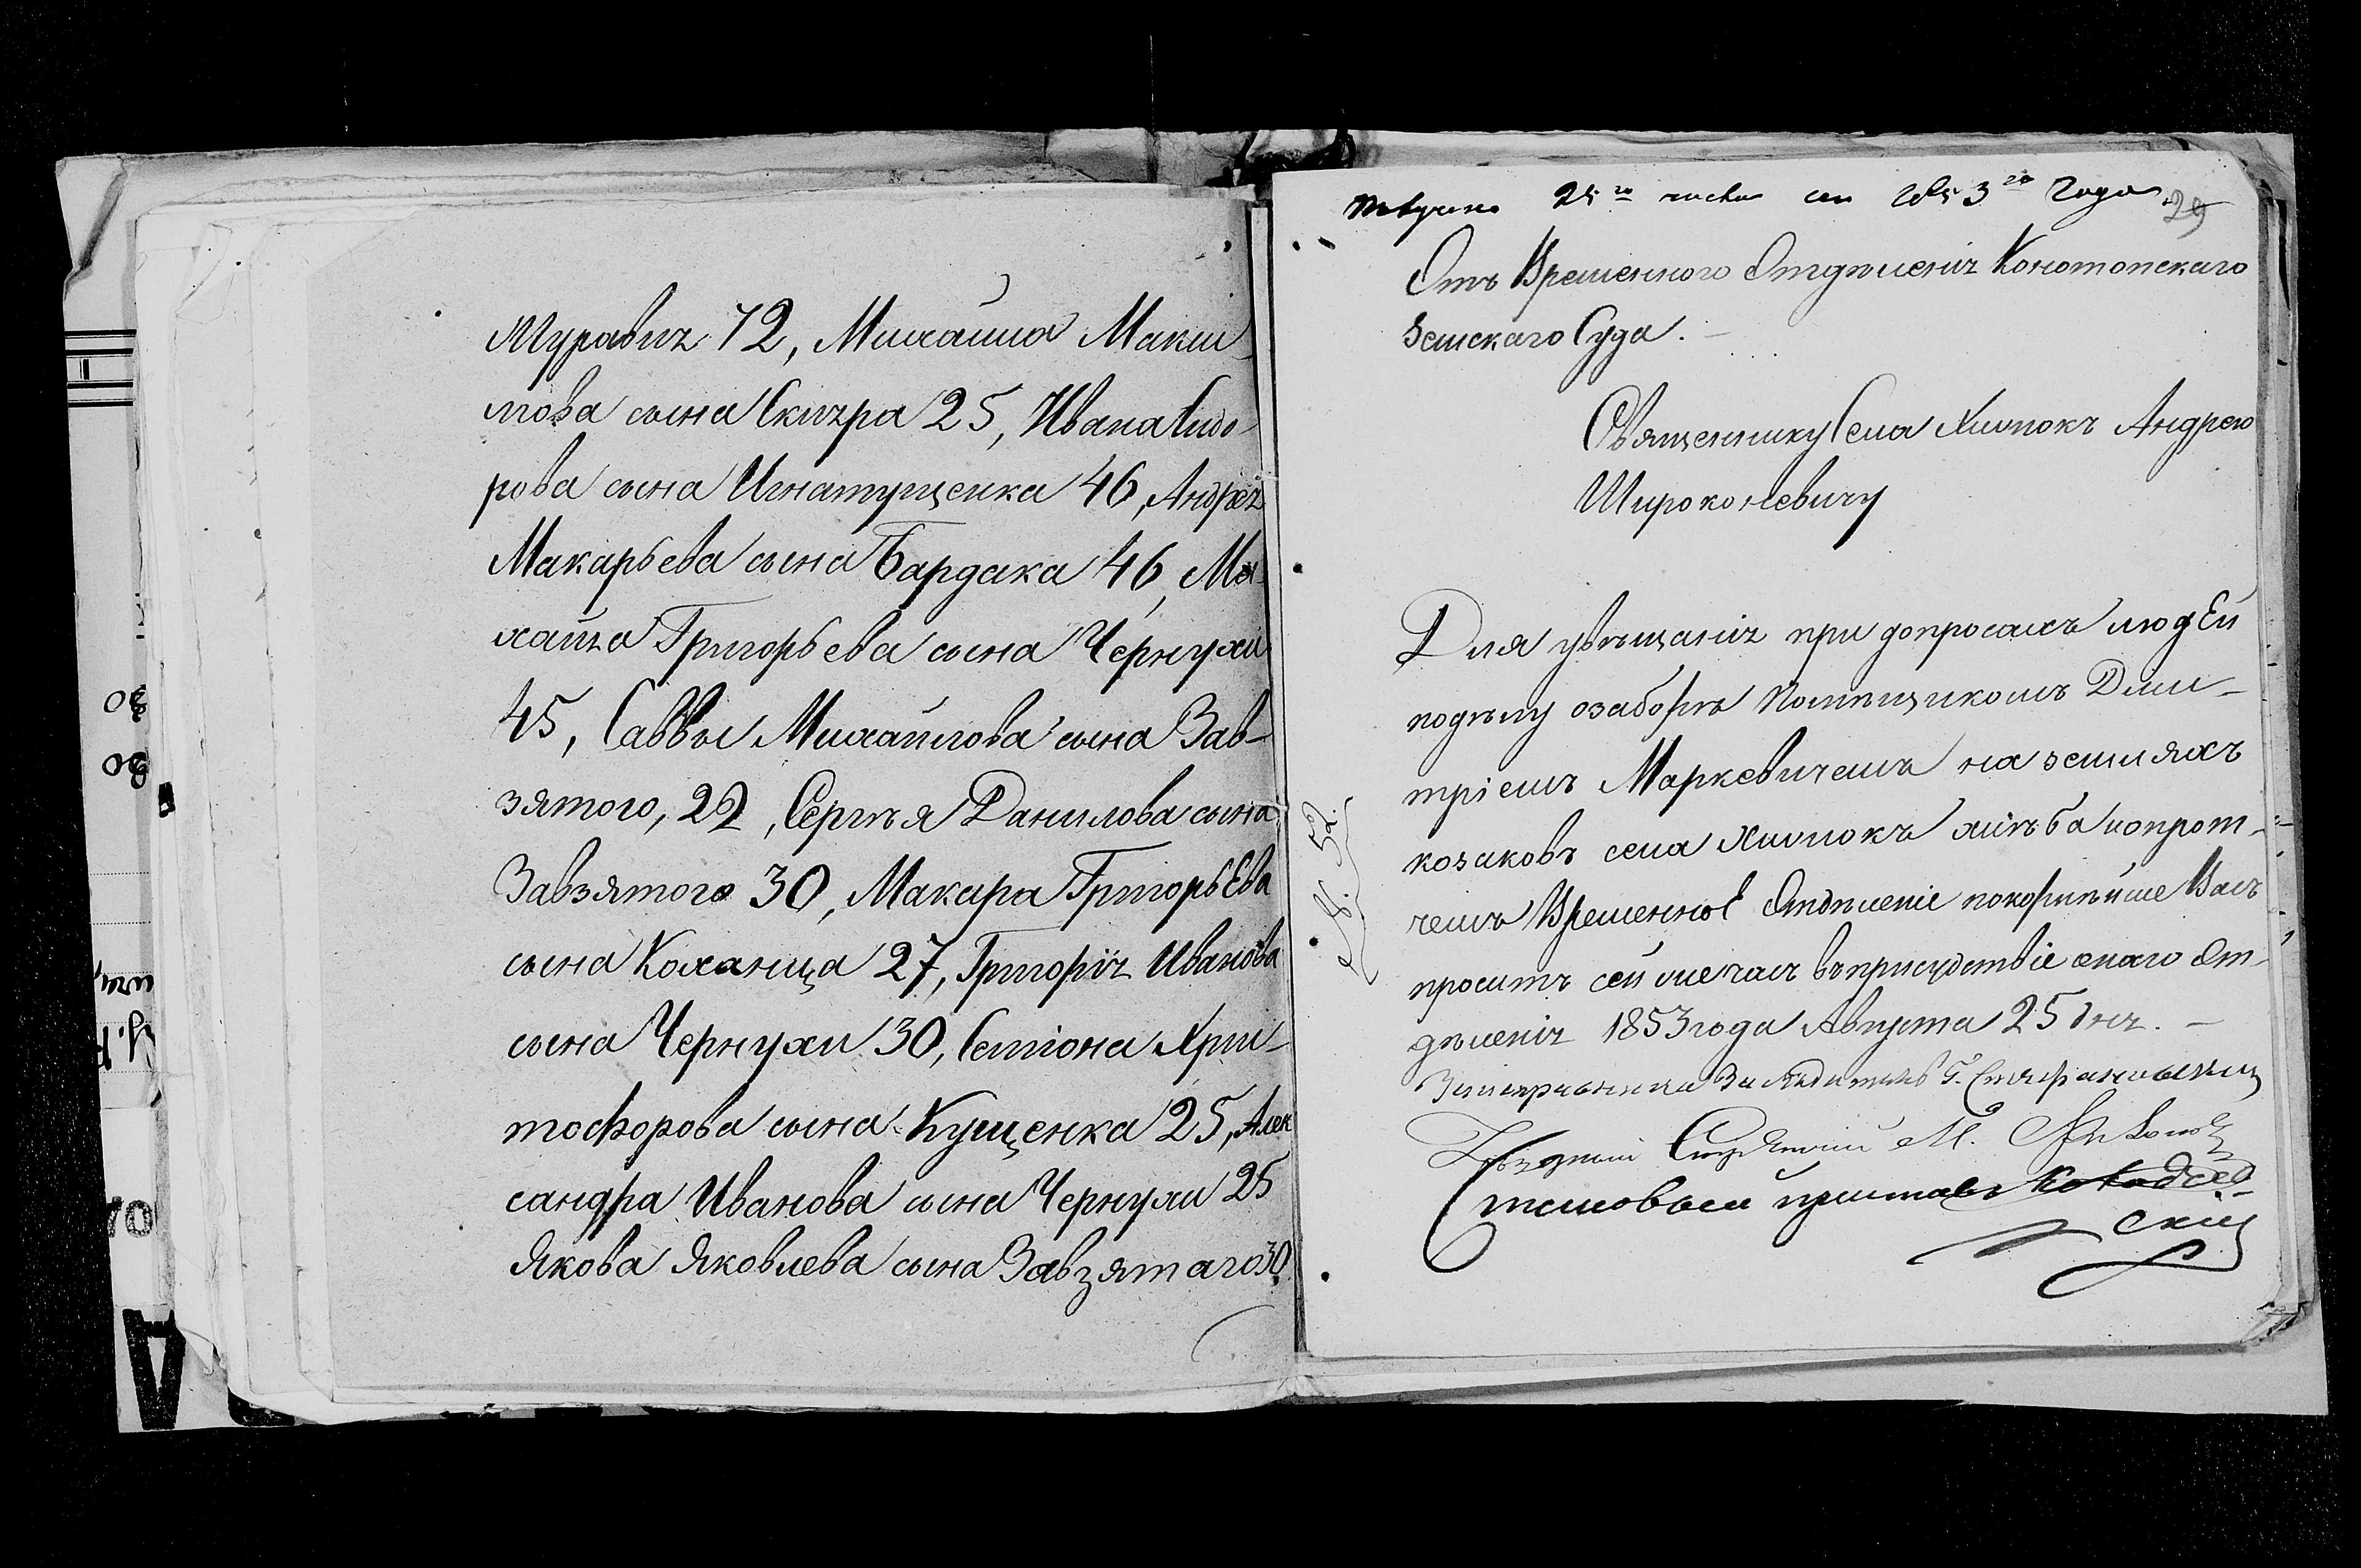 Муравия 72, Михайла Макси-
мова сына Скляра 25, Ивана Сидо-
рова сына Игнатущенка 46, Андрея
Макарьева сына Бардака 46, Ми-
хайла Григорьева сына Чернухи
45, Саввы Михайлова сына Зав-
зятого, 22, Сергѣя Данилова сына
Завзятого 30, Макара Григорьева
сына Коханца 27, Григорія Иванова
сына Чернухи 30, Семіона Хри-
тофорова сына Кущенка 25, Алек
сандра Иванова сына Чернухи 25
Якова Яковлева сына Завзятаго 30.
25го числа 1853го года
29
Отъ Временного Отдѣленія Конотопскаго
Земскаго Суда.
Священнику Села Хижокъ Андрею
Широконевичу
№. 52.
Для увѣщанія при допросахъ людей
подѣлу озаборѣ Помѣщикомъ Дми-
тріемъ Маркевичемъ на земляхъ
козаковъ села Хижокъ хлѣба ипрот-
чемъ Временное Отдѣленіе покорнѣйше Васъ
проситъ сей же часъ въприсудствіе онаго От-
дѣленія 1853 года Августа 25 дня.
Уѣздный Стряпчій М.
Становый приставъ
скій